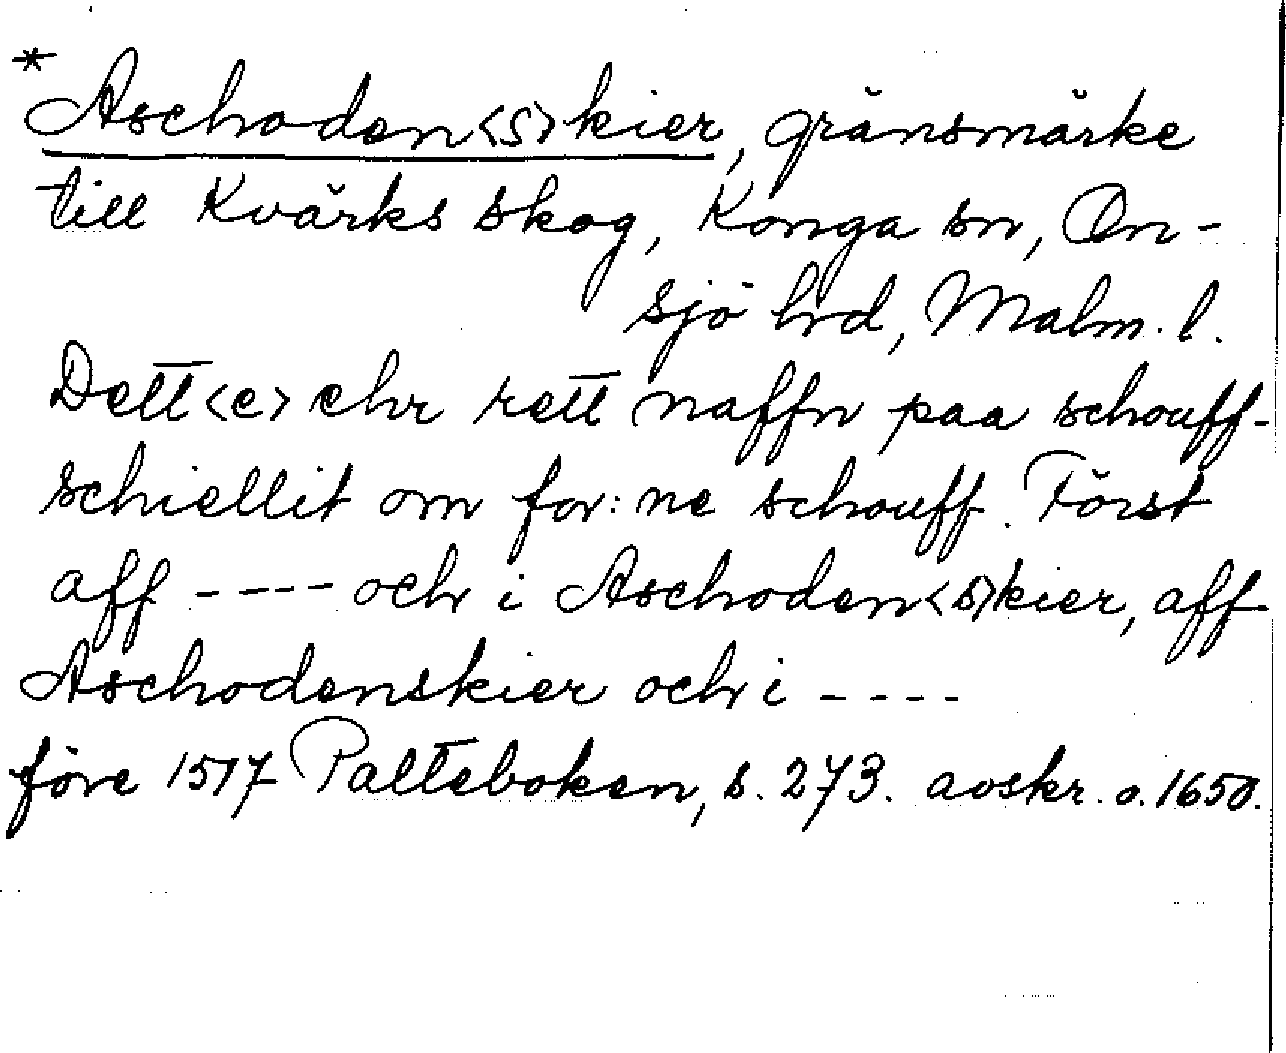 *
Aschoden<S>kier, gränsmärke
till Kvärks skog, Konga sn, On-
sjö hrd, Malm. l.
Dett̅<e> ehr rett̅ naffn paa schouff-
schiellit om for:ne schouff. Först
aff ---- och i Aschoden<s>kier, aff
Aschodenskier och i ----
före 1517 Palteboken, s. 273. avskr. o. 1650.